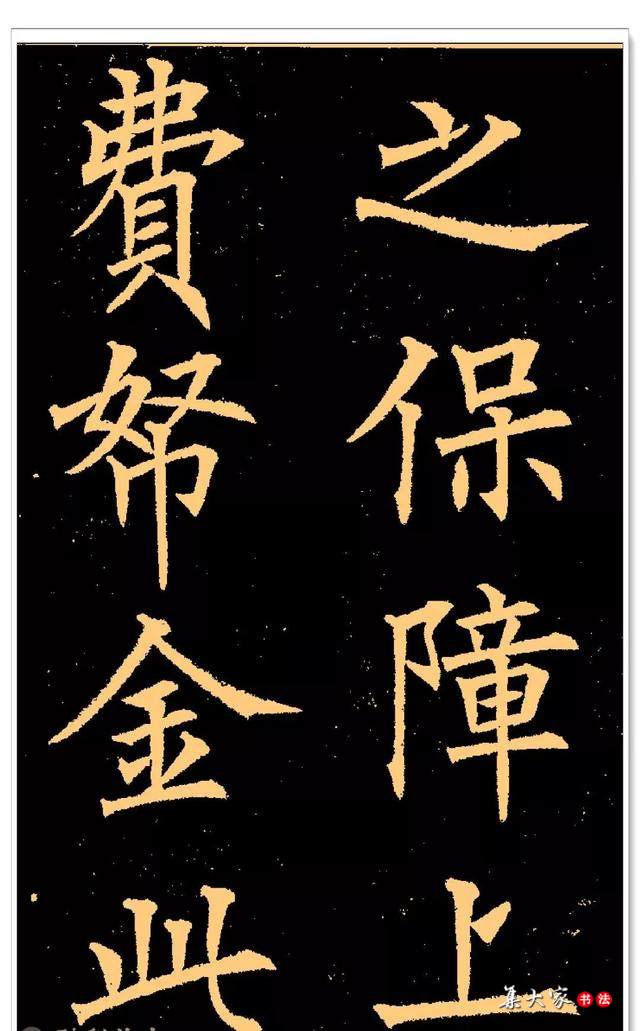 之保障上
費帑金此
集大家书法